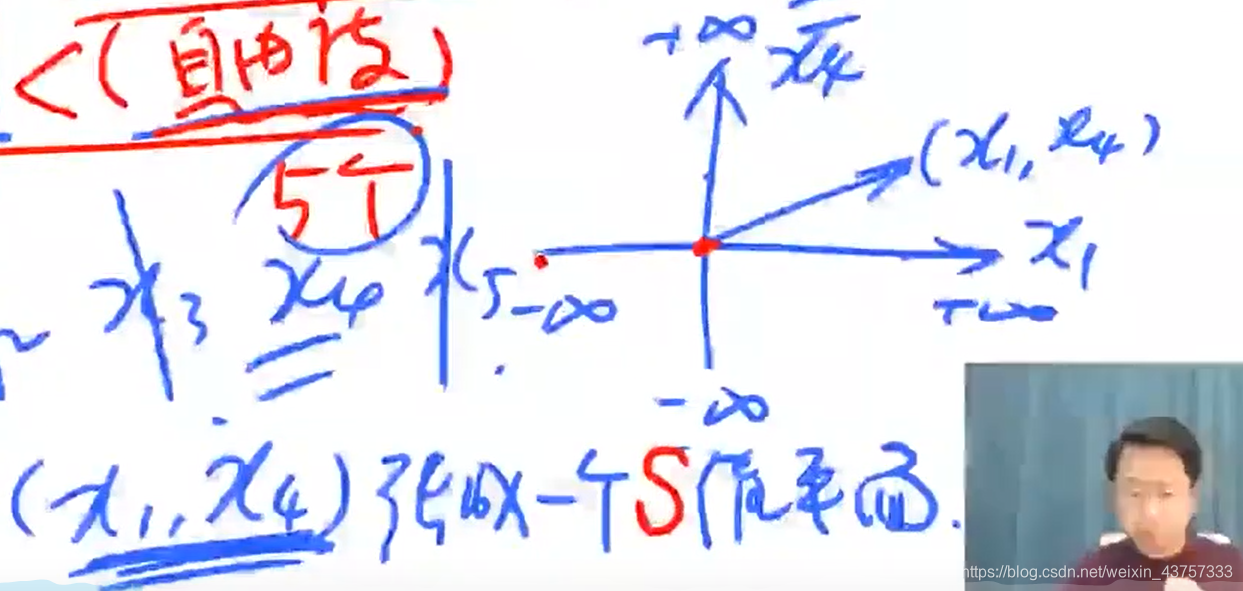 <(自由度)
5个
x3 x4 x5
+∞ x4
(x1, x4)
x1
-∞ +∞
-∞
(x1, x4) 张成一个S值平面.
https://blog.csdn.net/weixin_43757333